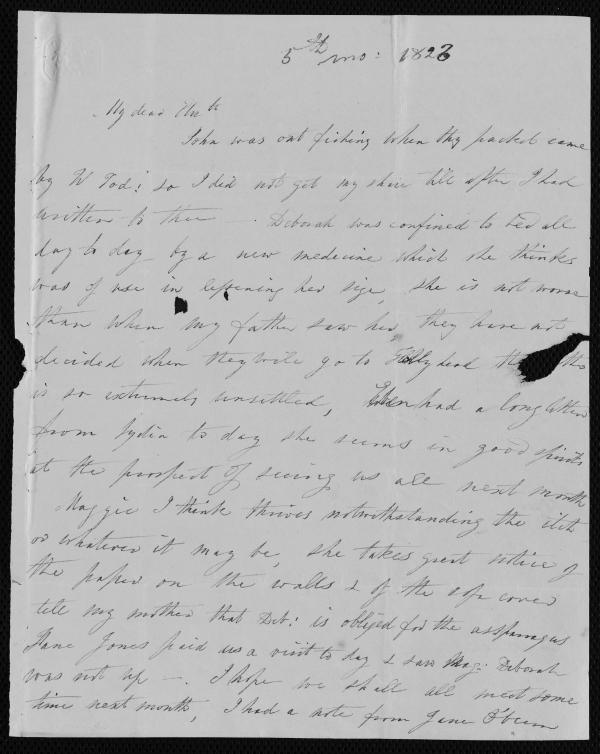 5th mo: 1826
My dear Anth
John was out fishing when thy packet came
by W Tod: so I did not get my share till after I had
written to thee —. Deborah was confined to bed all
day to day by a new medecine which she thinks
was of use in lessening her size, she is not worse
than when my father saw her, they have not
decided when they will go to Tollyhead the
is so extremely unsettled, Eben had a long letter
from Lydia to day she seems in good spirits
at the prospect of seeing us all next month
Maggie I think thrives notwithstanding the itch
or whatever it may be, she takes great notice of
the paper on the walls & of the sofa cover
tell my mother that Deb: is obliged for the assparagus
Jane Jones paid us a visit to day & saw Mag: Deborah
was not up —. I hope we shall all meet some
time next month, I had a note from Jane